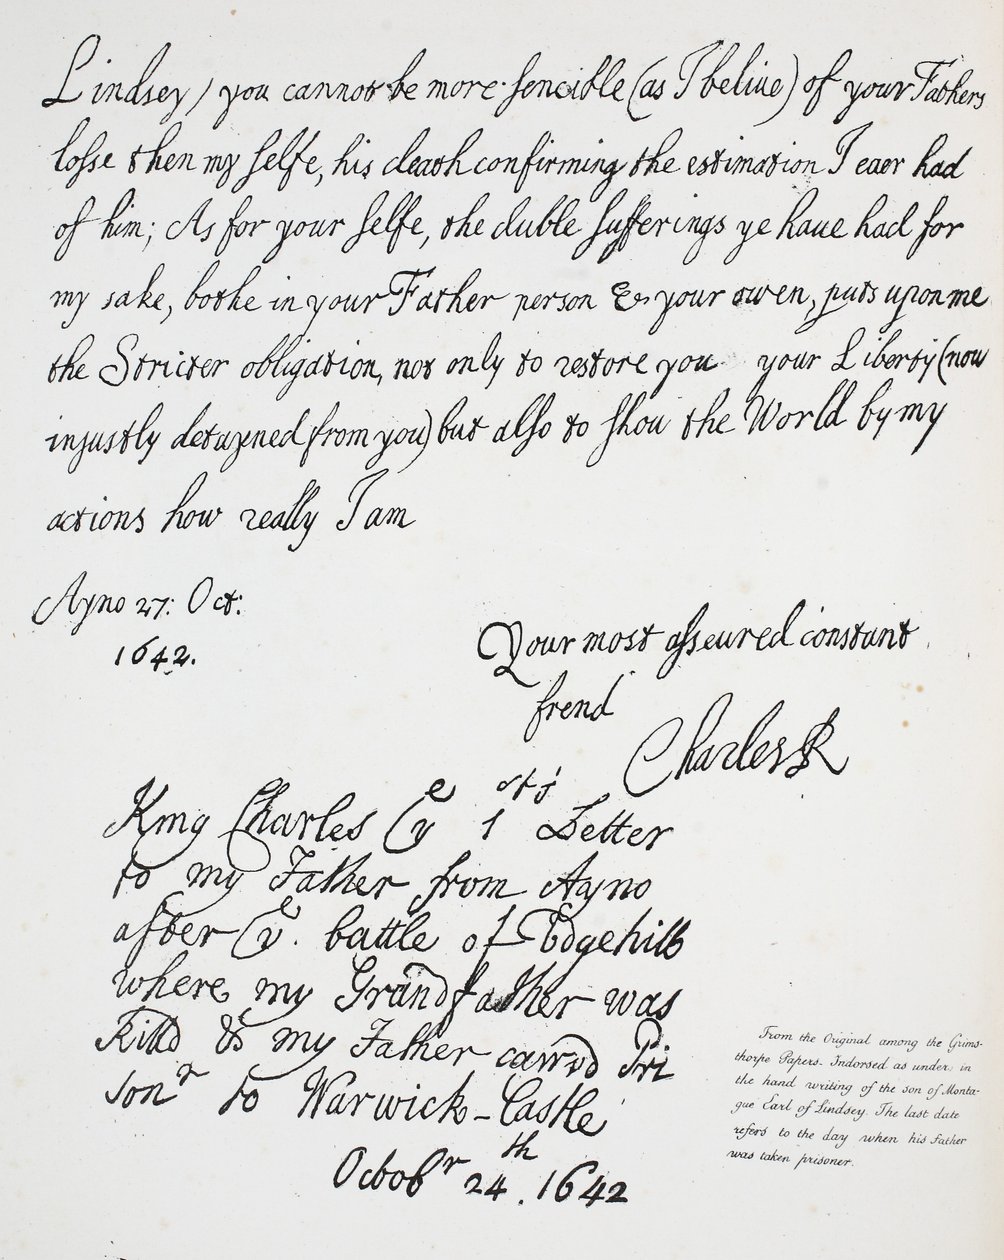 Lindsey, you cannot be more sencible (as I beliue) of your Fathers
losse then my selfe, his death confirming the estimation I euer had
of him; As for your selfe, the duble sufferings ye haue had for
my sake, bothe in your Father person & your owen, puts upon me
the Stricter obligation, not only to restore you your Liberty (now
injustly detayned from you) but also to shou the World by my
actions how really I am
Ayno 27: Oct:
1642.
Your most asseured constant
frend
Charles R
King Charles yᵉ 1ˢᵗ Letter
to my Father from Ayno
after yᵉ. battle of Edgehill
where my Grandfather was
Killd & my Father carryd Pri
sonʳ to Warwick-Castle
Octobʳ 24th. 1642
From the Original among the Grims-
thorpe Papers. Indorsed as under, in
the hand writing of the son of Monta-
gue Earl of Lindsey. The last date
refers to the day when his Father
was taken prisoner.